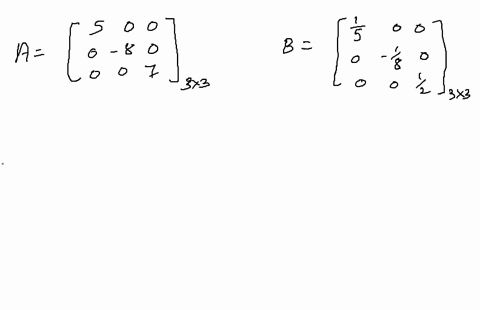 A = [ 5 0 0
0 -8 0
0 0 7 ] 3x3
B = [ 1/5 0 0
0 -1/8 0
0 0 1/2 ] 3x3